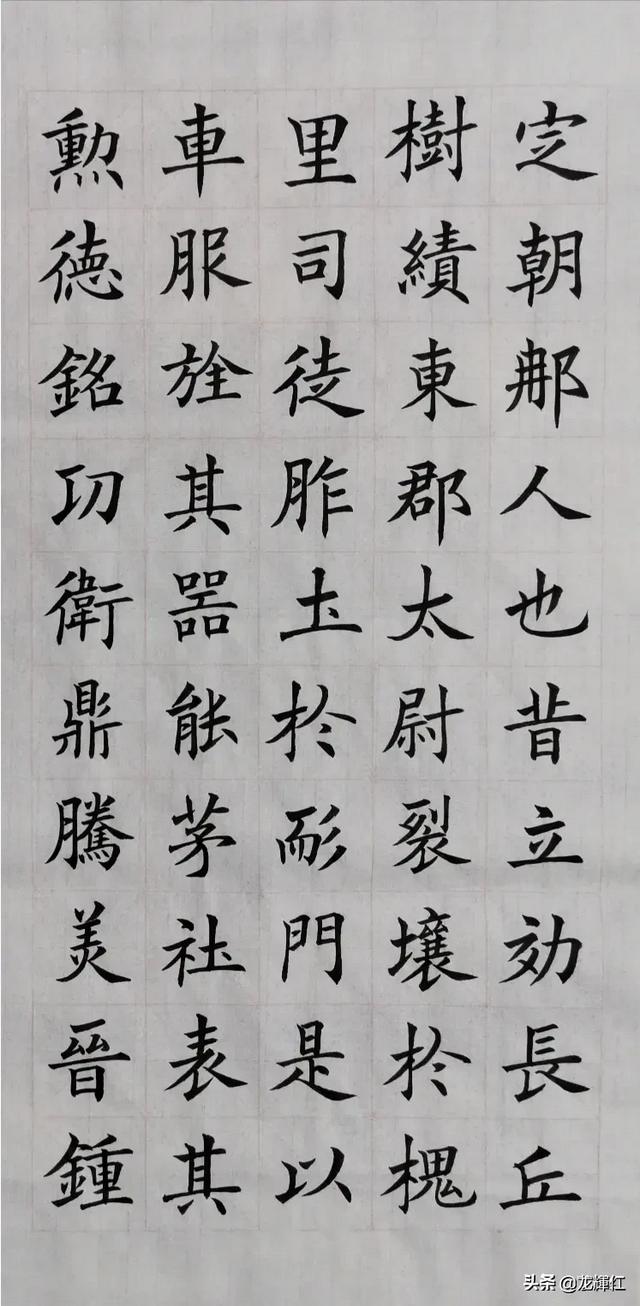 定朝那人也昔立効長丘
樹績東郡太尉裂壤於槐
里司徒胙土於耏門是以
車服旌其器能茅社表其
勲德銘功衛鼎騰美晉鍾
头条 @龙輝红